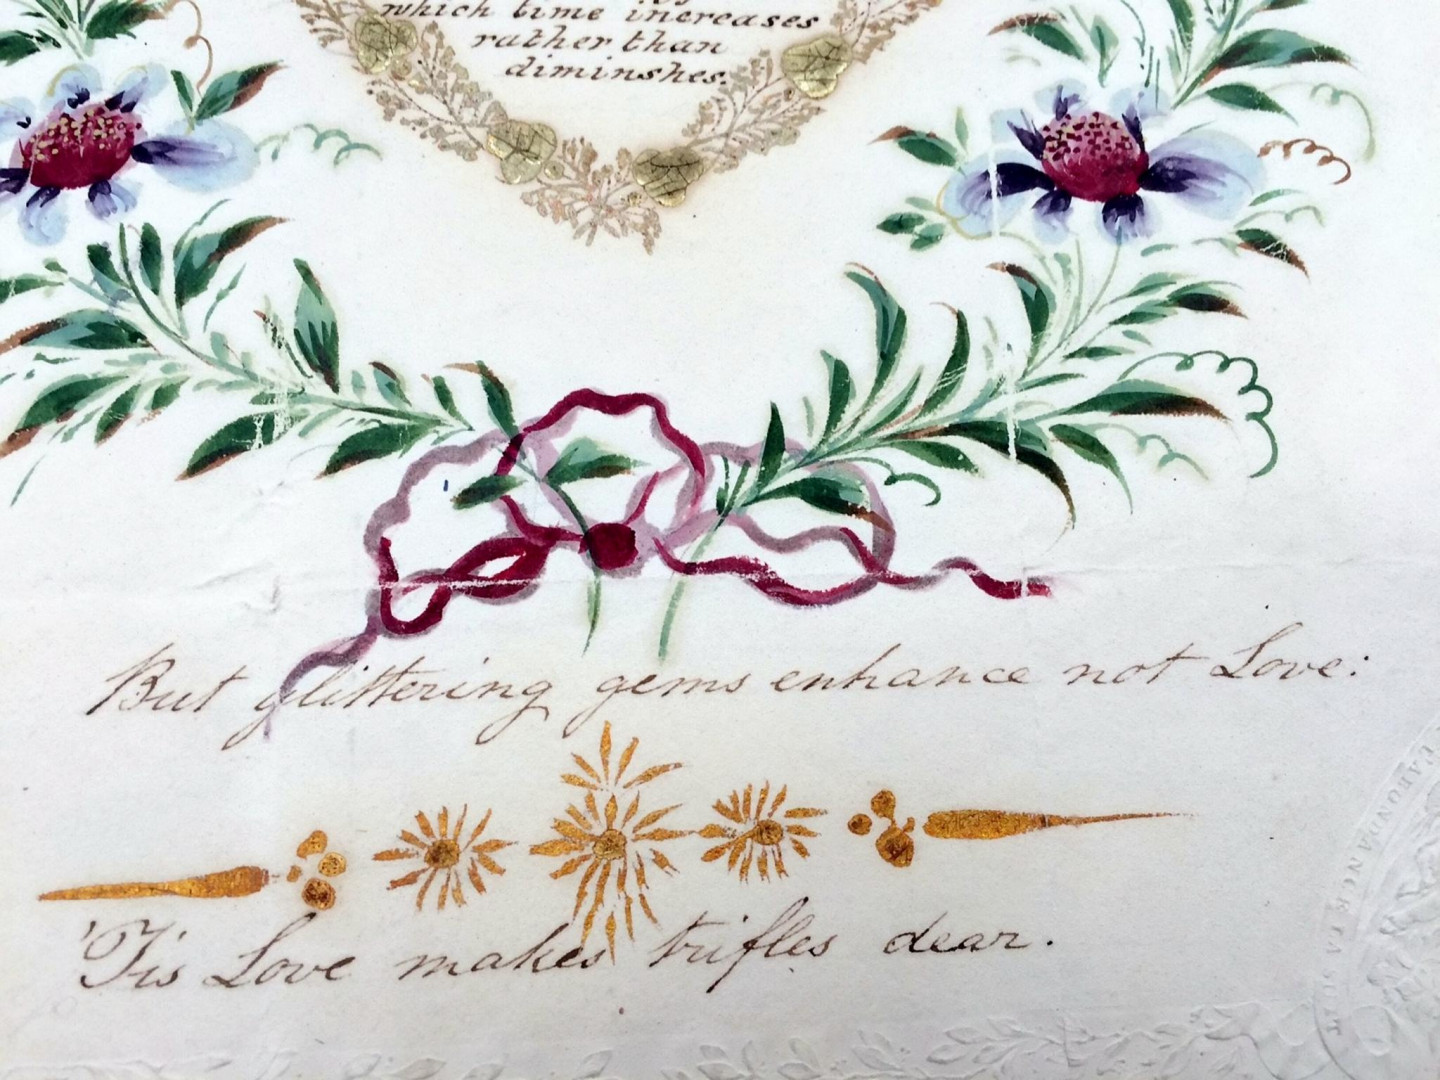 which time increases
rather than
diminshes.
But glittering gems enhance not Love:
'Tis Love makes trifles dear.
L'ABONDANCE LA SUIT